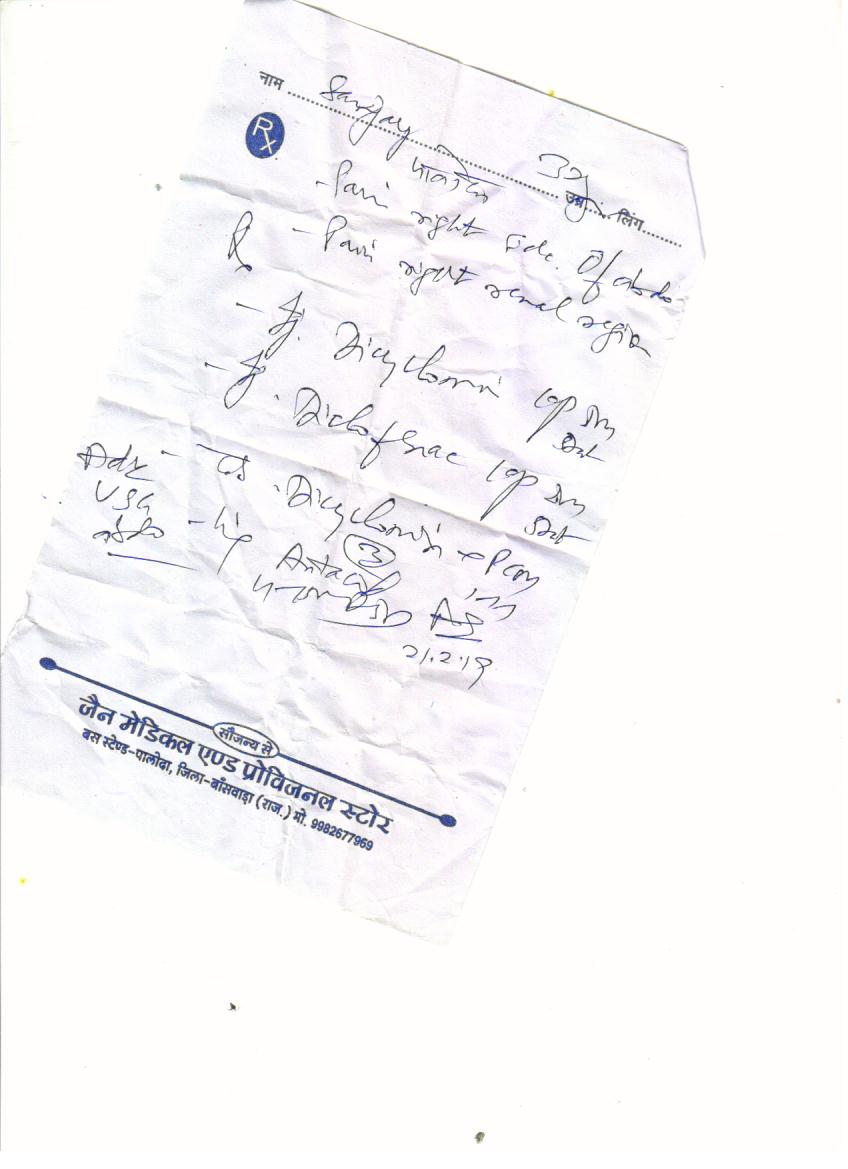 नाम ........ Sanjay ........ 32y उम्र........ लिंग........
Rx
- Pain right side of abdo
R - Pain right renal region
- Ij. Dicyclomin 1 op
Stat
- Ij. Diclofenac 1 op
Stat
Adv - Dicyclomin + Pcm
USG (3)
abdo - Antacid
21.2.19
सौजन्य से
जैन मेडिकल एण्ड प्रोविजनल स्टोर
बस स्टेण्ड-पालोदा, जिला-बाँसवाड़ा (राज.) मो. 9982677969